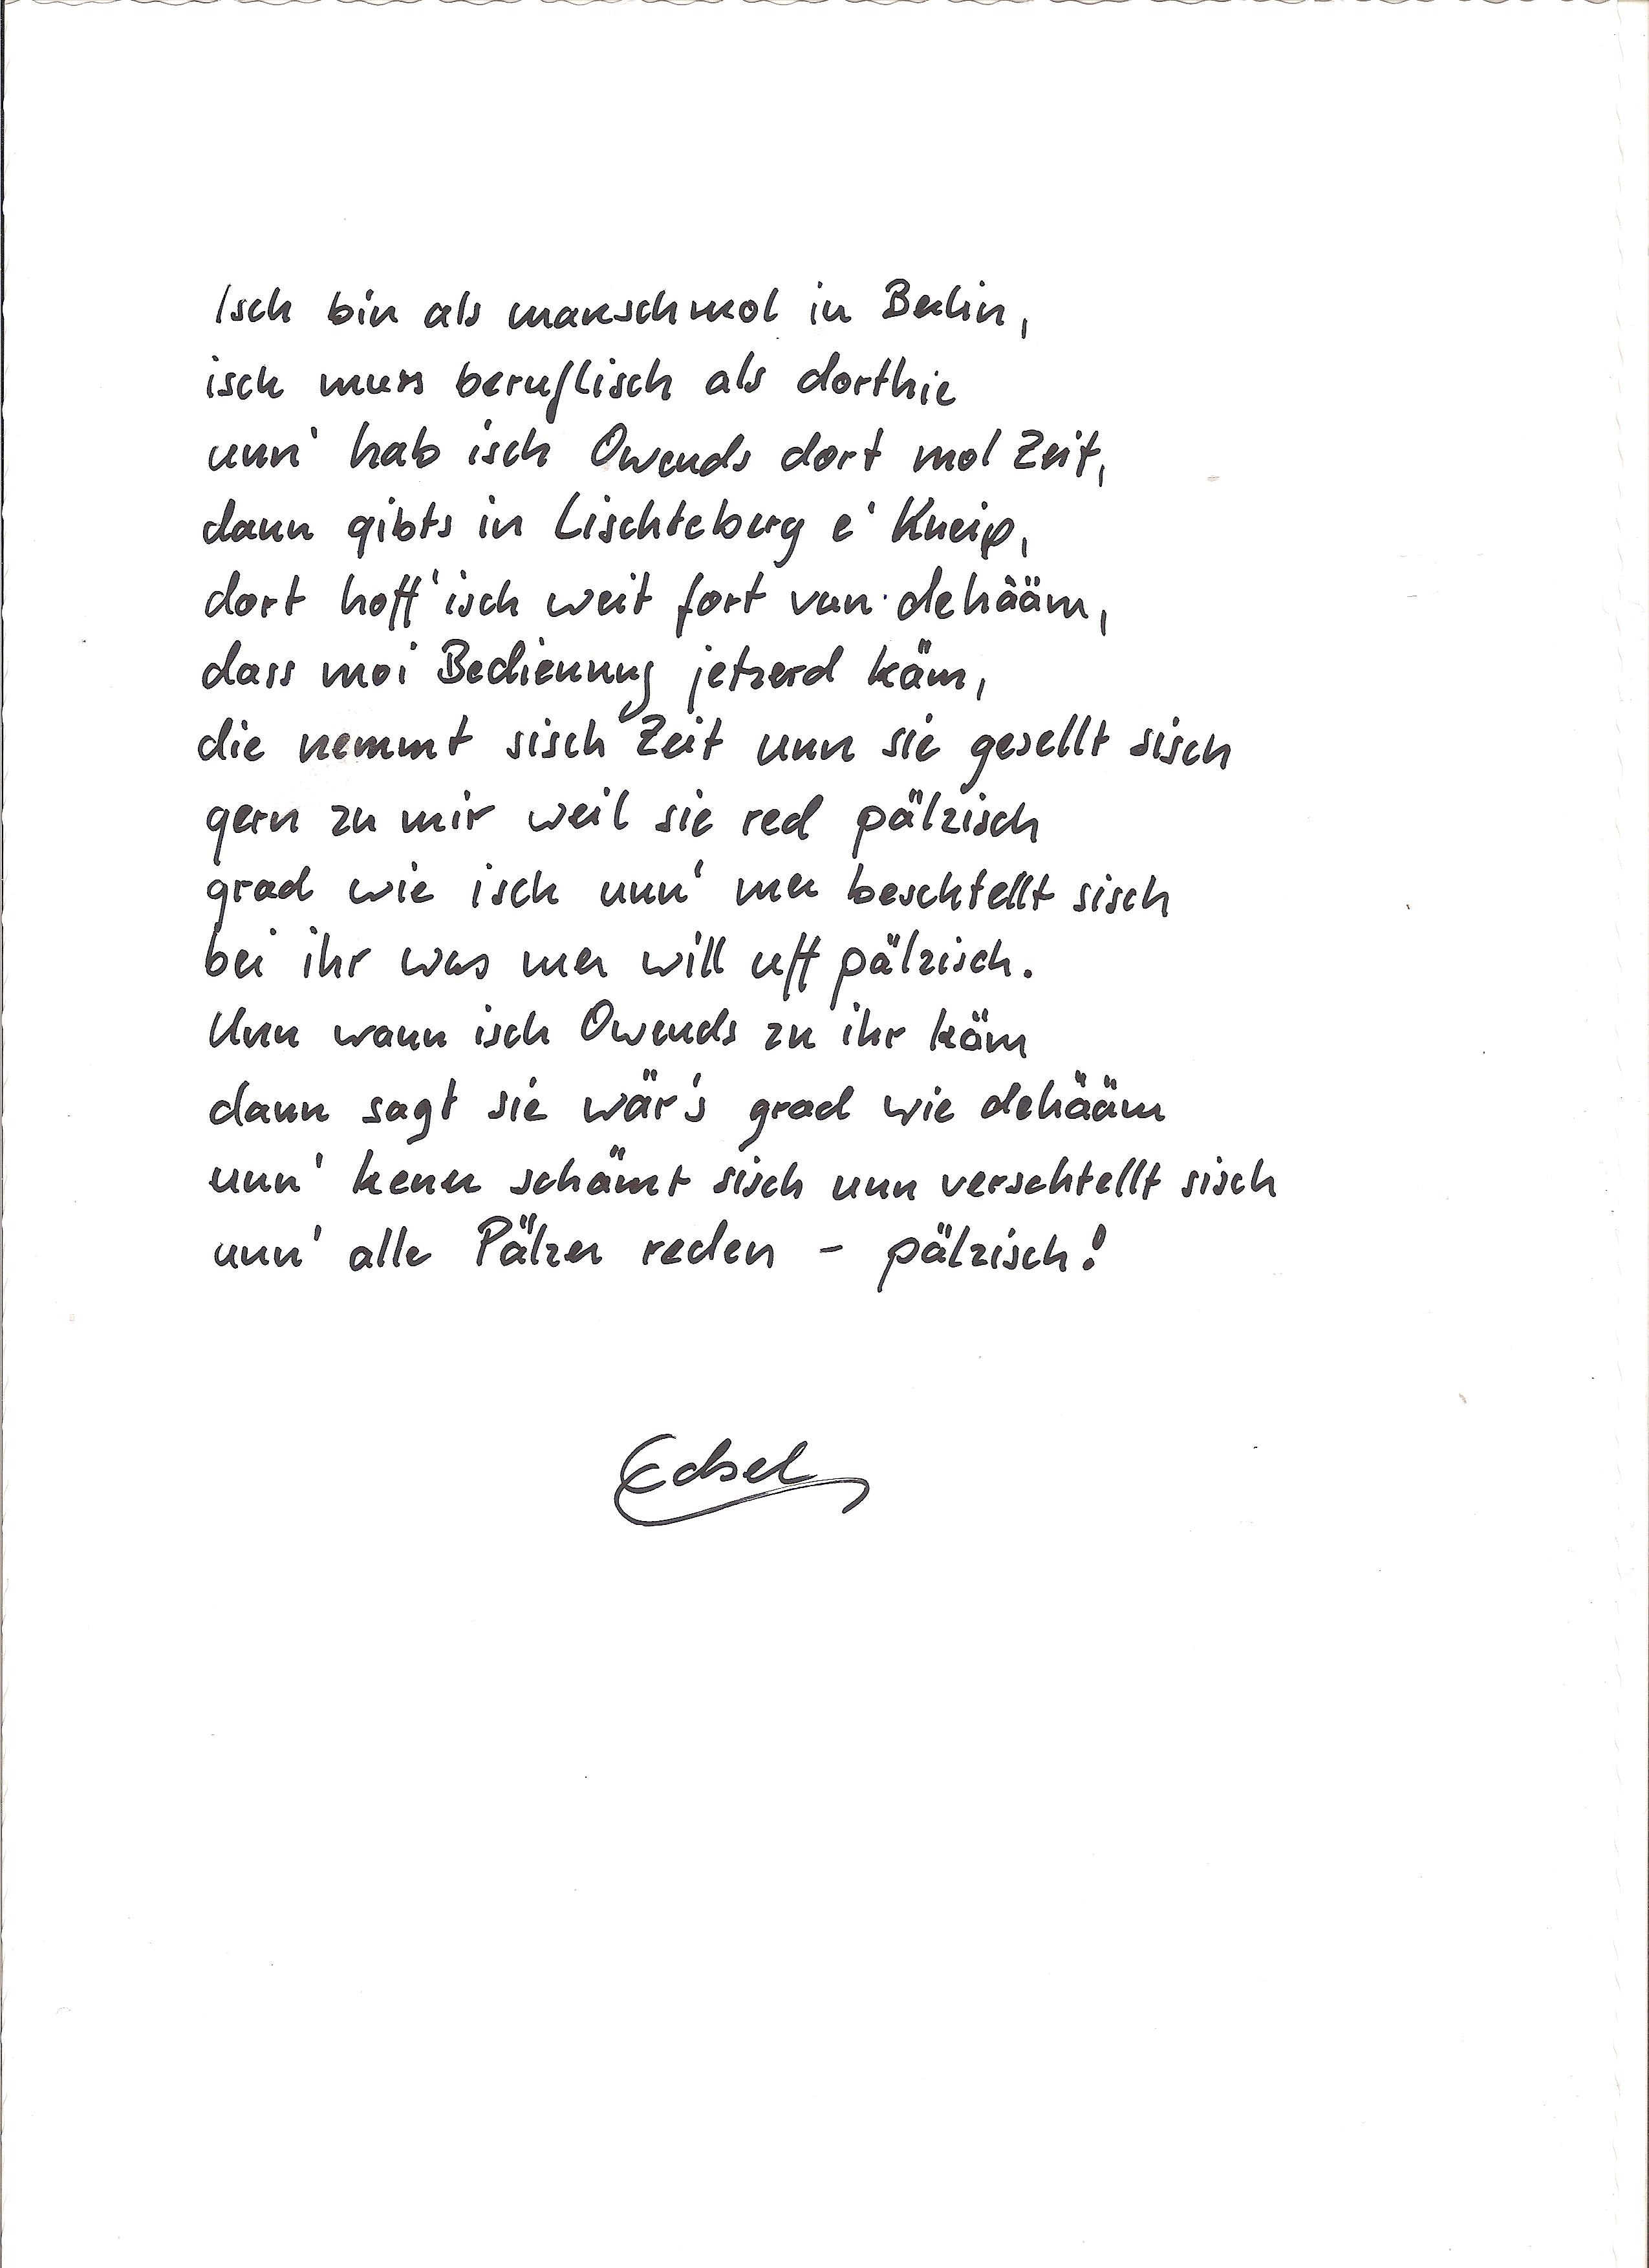 Isch bin als manschmol in Berlin,
isch muss beruflisch als dorthie
unn' hab isch Owends dort mol Zeit,
dann gibts in Lischteberg e' Kneip,
dort hoff' isch weit fort vun dehääm,
dass moi Bedienung jetzerd käm,
die nemmt sisch Zeit unn sie gesellt sisch
gern zu mir weil sie red pälzisch
grad wie isch unn' mer beschtellt sisch
bei ihr was mer will uff pälzisch.
Unn wann isch Owends zu ihr käm
dann sagt sie wär's grad wie dehääm
unn' kener schämt sisch unn verschtellt sisch
unn' alle Pälzer reden - pälzisch!